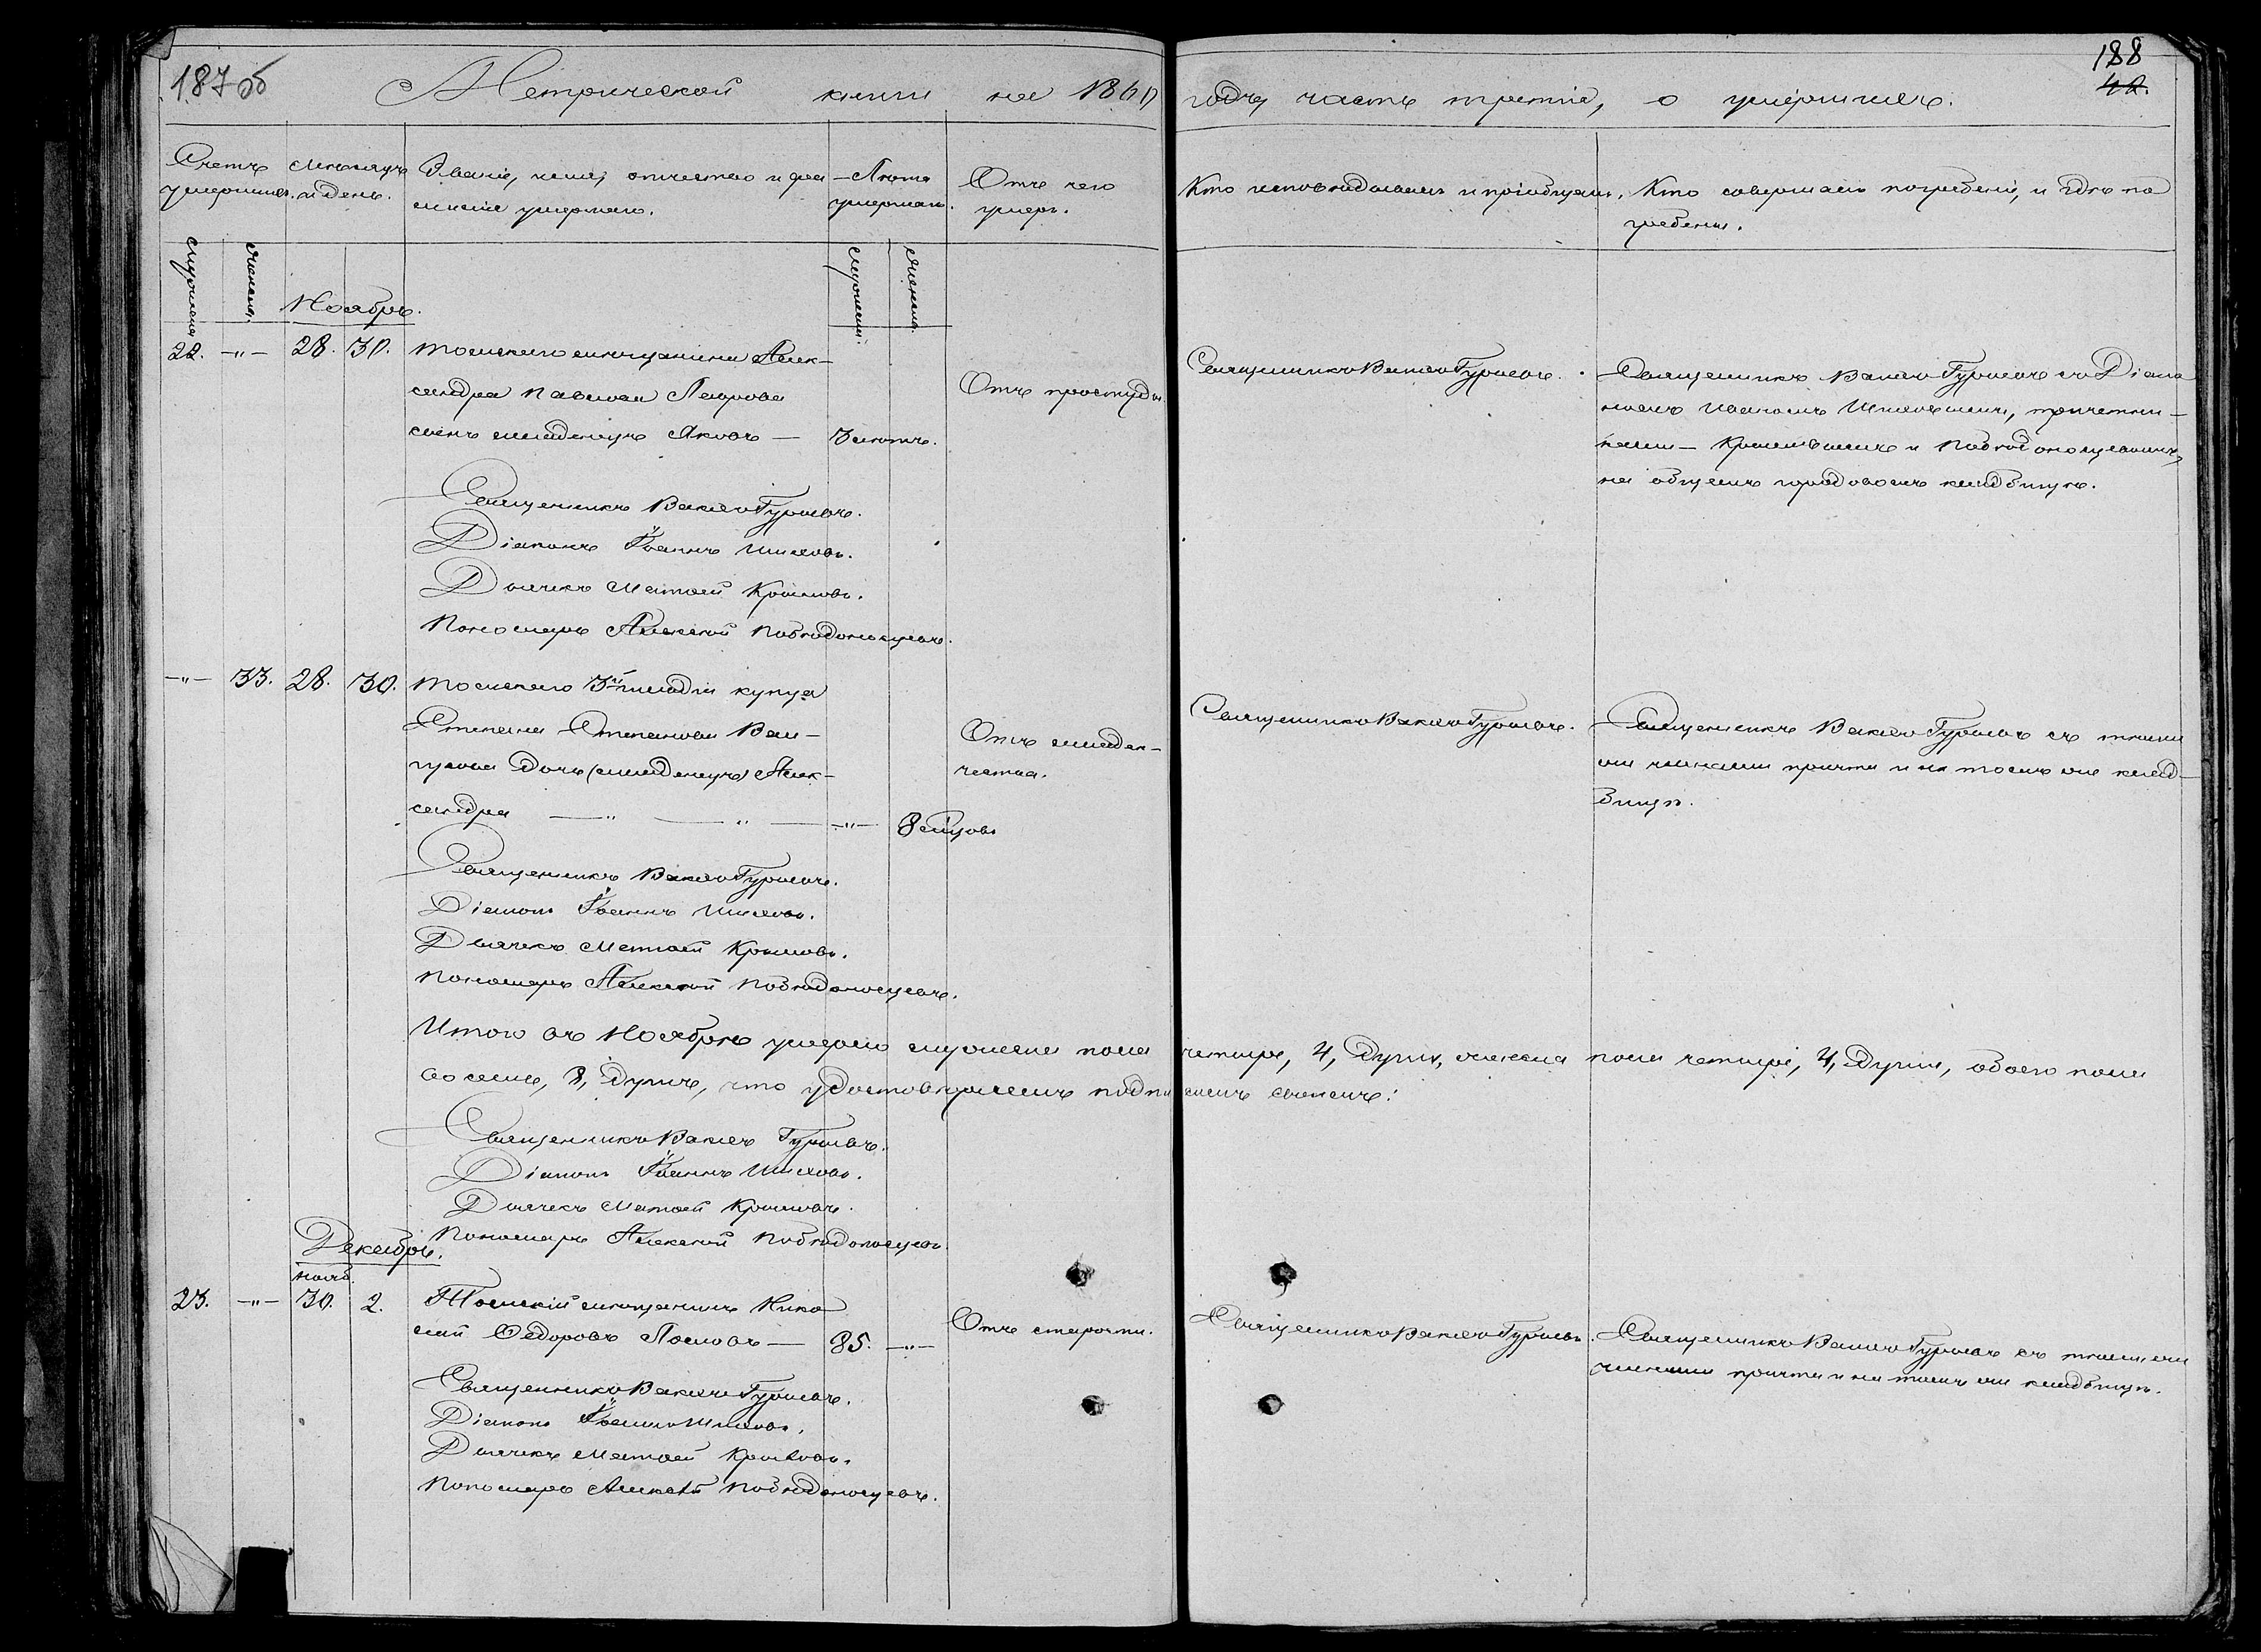 187 об
188
42.
Метрической книги на 1860 года, часть третія, о умершихъ.
Счетъ умершихъ.
Мѣсяцъ и день.
Званіе, имя, отчество и фа-
милія умершаго.
Лѣта умершаго.
Отъ чего умеръ.
Кто исповѣдывалъ и пріобщалъ.
Кто совершалъ погребеніе, и гдѣ по
гребены.
Мужеска.
Женска.
Ноябрь.
Мужеска.
Женска.
22. -"- 28. 30. Томскаго мѣщанина Алек-
сандра Павлова
сынъ младенецъ Яковъ — 3 лѣтъ.
Отъ простуды.
Священникъ Вакхъ Гурьевъ.
Священникъ Вакхъ Гурьевъ съ Діако
номъ Иваномъ причетни-
ками — Крыловымъ и Побѣдоносцевымъ,
на общемъ городовомъ кладбищѣ.
Священникъ Вакхъ Гурьевъ.
Діаконъ Іоаннъ
Дьячекъ Матѳей Крыловъ.
Пономарь Алексѣй Побѣдоносцевъ.
-"- 33. 28. 30. Томскаго 3й гильдіи купца
Степана Степанова
дочь (младенецъ) Алек-
сандра — " — " — -"- 8 мѣсцовъ
Отъ младен-
чества.
Священникъ Вакхъ Гурьевъ.
Священникъ Вакхъ Гурьевъ съ тѣми
же членами причта и на томъ же клад-
бищѣ.
Священникъ Вакхъ Гурьевъ.
Діаконъ Іоаннъ
Дьячекъ Матѳей Крыловъ.
Пономарь Алексѣй Побѣдоносцевъ.
Итого въ Ноябрѣ умерло мужеска пола четыре, 4, души, женска пола четыре, 4, души, обоего пола
восемь, 8, душъ, что удостовѣряемъ подписомъ своимъ:
Священникъ Вакхъ Гурьевъ.
Діаконъ Іоаннъ
Дьячекъ Матѳей Крыловъ.
Пономарь Алексѣй Побѣдоносцевъ.
Декабрь.
нояб.
23. -"- 30. 2. Томскій мѣщанинъ Нико
лай Ѳедоровъ — 85. -"-
Отъ старости.
Священникъ Вакхъ Гурьевъ.
Священникъ Вакхъ Гурьевъ съ тѣми же
членами причта и на томъ же кладбищѣ.
Священникъ Вакхъ Гурьевъ.
Діаконъ Іоаннъ
Дьячекъ Матѳей Крыловъ.
Пономарь Алексѣй Побѣдоносцевъ.